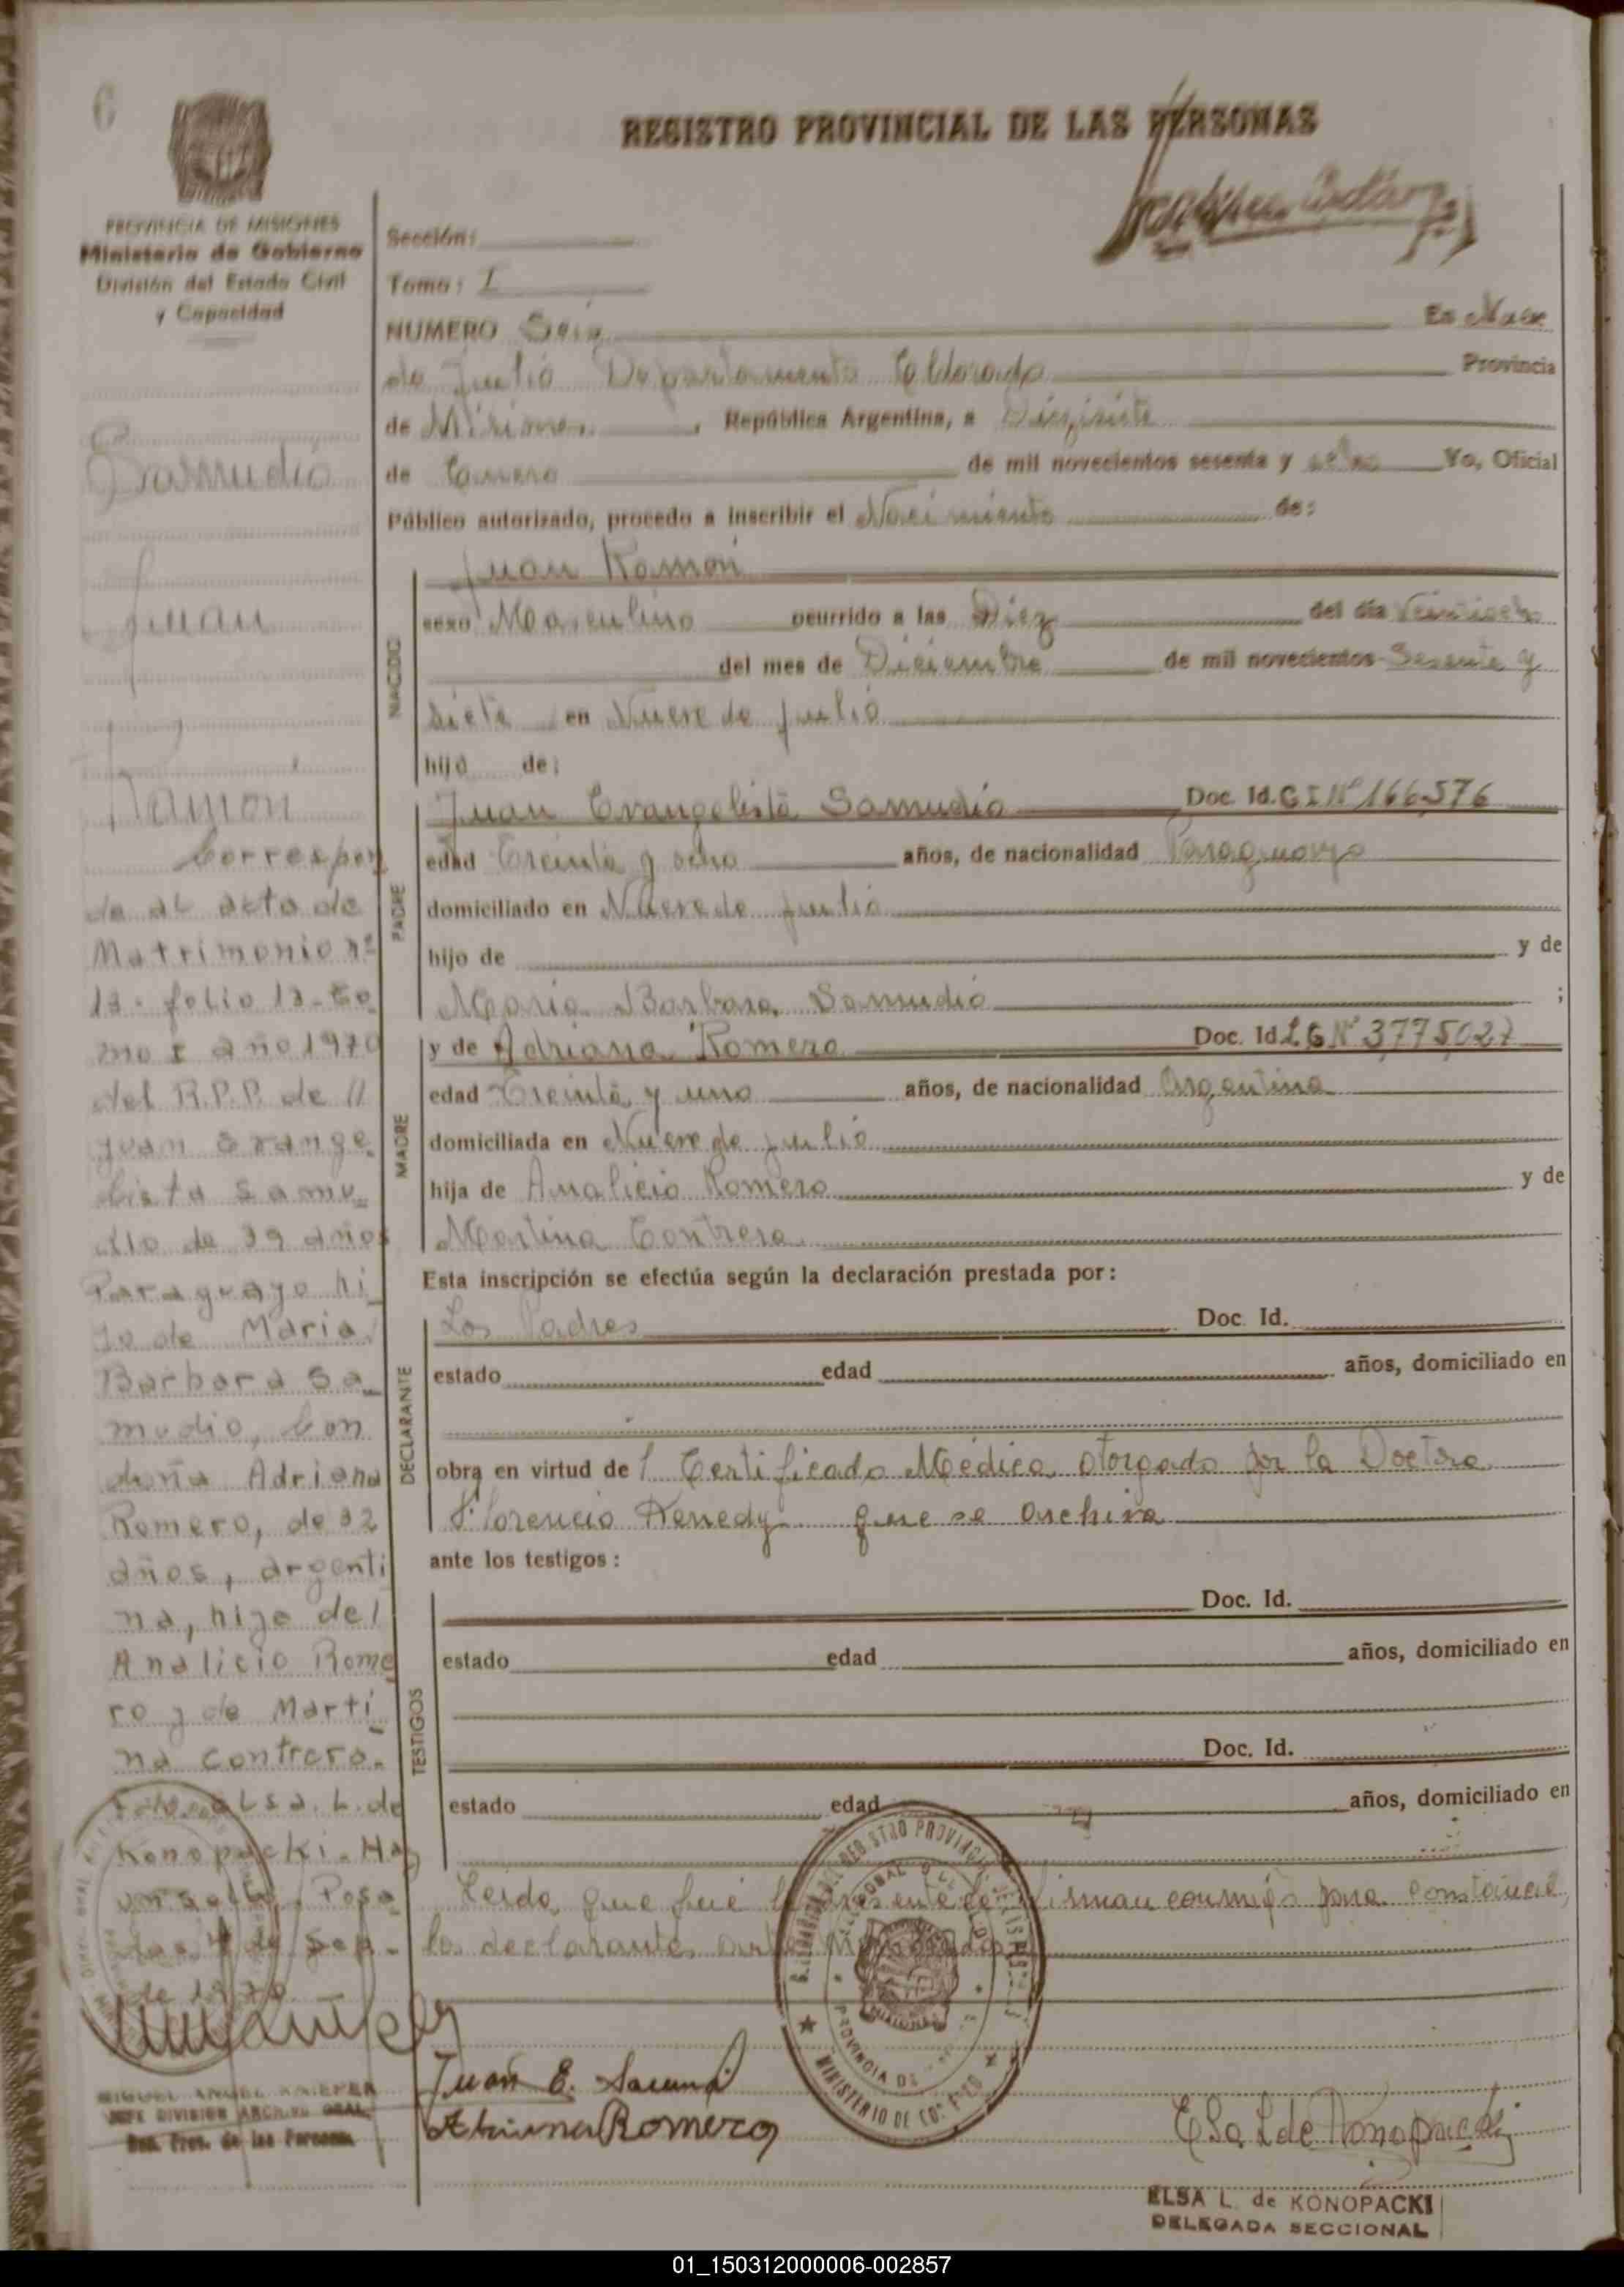 6
REGISTRO PROVINCIAL DE LAS PERSONAS
PROVINCIA DE MISIONES
Ministerio de Gobierno
División del Estado Civil
y Capacidad
Samudio
Juan
Ramon
Correspon
de al acta de
Matrimonio nº
13 - folio 13 - to
mo I año 1970
del R.P.P. de 11
Juan Evange
lista Samu
dio de 39 años
Paraguayo hi
jo de Maria
Barbara Sa
mudio, con
doña Adriana
Romero, de 32
años, argenti
na, hija de
Analicio Rome
ro y de Marti
na Contrera.
Elsa. L. de
Konopacki. Hay
un sello. Posa
das, 4 de Sep.
de 1970.
MIGUEL ANGEL KNIEPER
JEFE DIVISION ARCHIVO GRAL.
Reg. Prov. de las Personas
Sección:
Tomo: I
NUMERO Seis En Nueve
de Julio Departamento Eldorado Provincia
de Misiones, República Argentina, a Diezisiete
de Enero de mil novecientos sesenta y ocho Yo, Oficial
Público autorizado, procedo a inscribir el Nacimiento de:
NACIDO
Juan Ramon
sexo Masculino ocurrido a las Diez del día Veintiocho
del mes de Diciembre de mil novecientos Sesenta y
siete en Nueve de Julio
hijo de:
PADRE
Juan Evangelista Samudio Doc. Id. C I Nº 166,576
edad Treinta y ocho años, de nacionalidad Paraguayo
domiciliado en Nueve de Julio
hijo de y de
Maria Barbara Samudio ;
MADRE
y de Adriana Romero Doc. Id. L C Nº 3,775,027
edad Treinta y uno años, de nacionalidad Argentina
domiciliada en Nueve de Julio
hija de Analicio Romero y de
Martina Contrera
Esta inscripción se efectúa según la declaración prestada por:
DECLARANTE
Los Padres Doc. Id.
estado edad años, domiciliado en
obra en virtud del Certificado Médico otorgado por la Doctora
Florencia Kenedy que se archiva
ante los testigos:
TESTIGOS
Doc. Id.
estado edad años, domiciliado en
Doc. Id.
estado edad años, domiciliado en
Leida que fué la presente la firman conmigo para constancia,
los declarantes antes
MINISTERIO DE
PROVINCIA DE
Juan E. Samud
Adriana Romero
Elsa L de Konopacki
ELSA L. de KONOPACKI
DELEGADA SECCIONAL
01_150312000006-002857